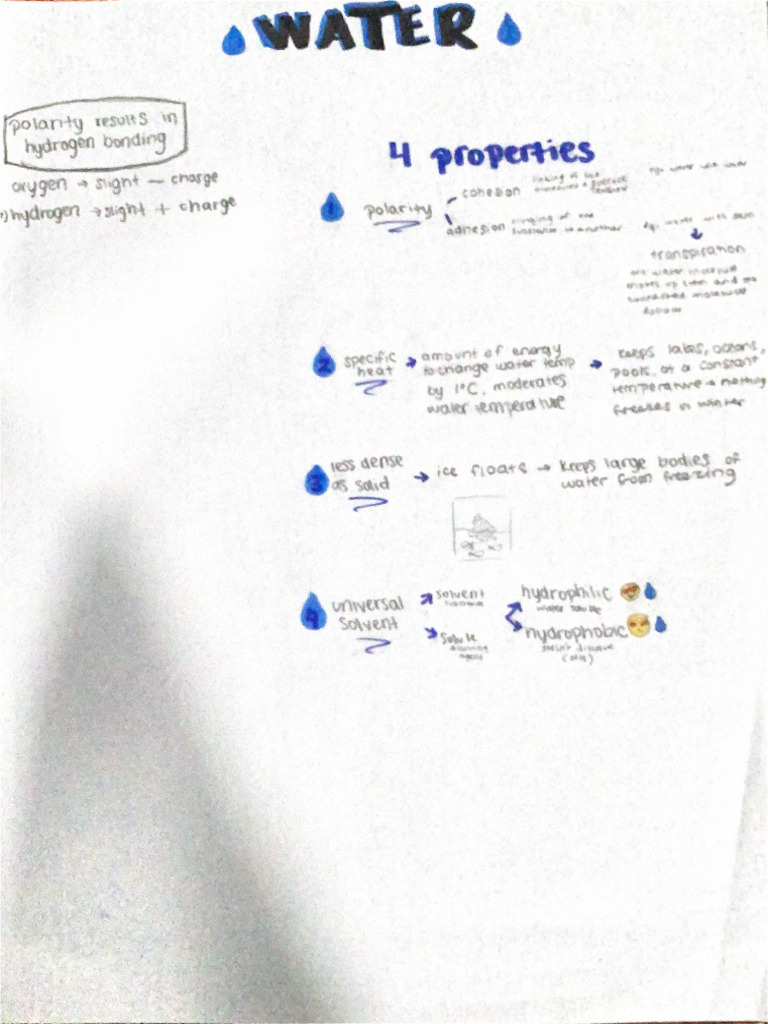 WATER
polarity results in
hydrogen bonding
oxygen → slight – charge
hydrogen → slight + charge
4 properties
1 polarity
cohesion
adhesion clinging of one
substance to another
transpiration
2 specific
heat
→ amount of energy
to change water temp
by 1°C, moderates
water temperature
→ keeps lakes, oceans,
pools, at a constant
temperature → nothing
freezes in winter
3 less dense
as solid
→ ice floats → keeps large bodies of
water from freezing
4 universal
solvent
solvent
solute
hydrophilic
water soluble
hydrophobic
doesn't dissolve
(oils)